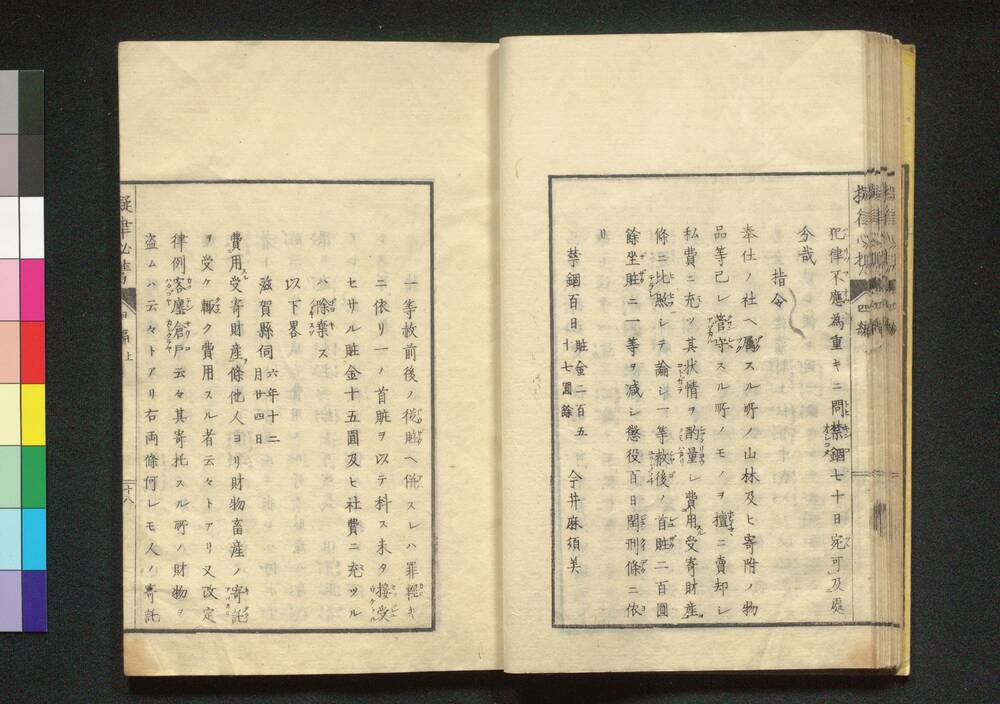 犯律不應為重キニ問禁錮七十日宛可及處
分哉
指令
本仕ノ社ヘ属スル所ノ山林及ヒ寄附ノ物
品等已レ管守スル所ノモノヲ擅ニ賣却シ
私費ニ充ツ其状情ヲ酌量シ費用受寄財産
條ニ比照シテ論シ一等赦後ノ首贓二百圓
餘坐贓ニ一等ヲ減シ懲役百日閏刑條ニ依
リ
禁錮百日 贓金二百五十七圓餘 今井麻須美
一等赦前後ノ從贓ヘ併スレハ罪輕キ
ニ依リ一ノ首贓ヲ以テ科ス未タ接受
セサル贓金十五圓及ヒ社費ニ充ツル
ハ除棄ス
以下畧
滋賀縣伺 六年十二月廿四日
費用受寄財産條他人ヨリ財物畜産ノ寄託
ヲ受ケ輙ク費用スル者云々トアリ又改定
律例客廛倉戸云々其寄托スル所ノ財物ヲ
盗ムハ云々トアリ右両條何レモ人ノ寄託
擬律必携 四編上